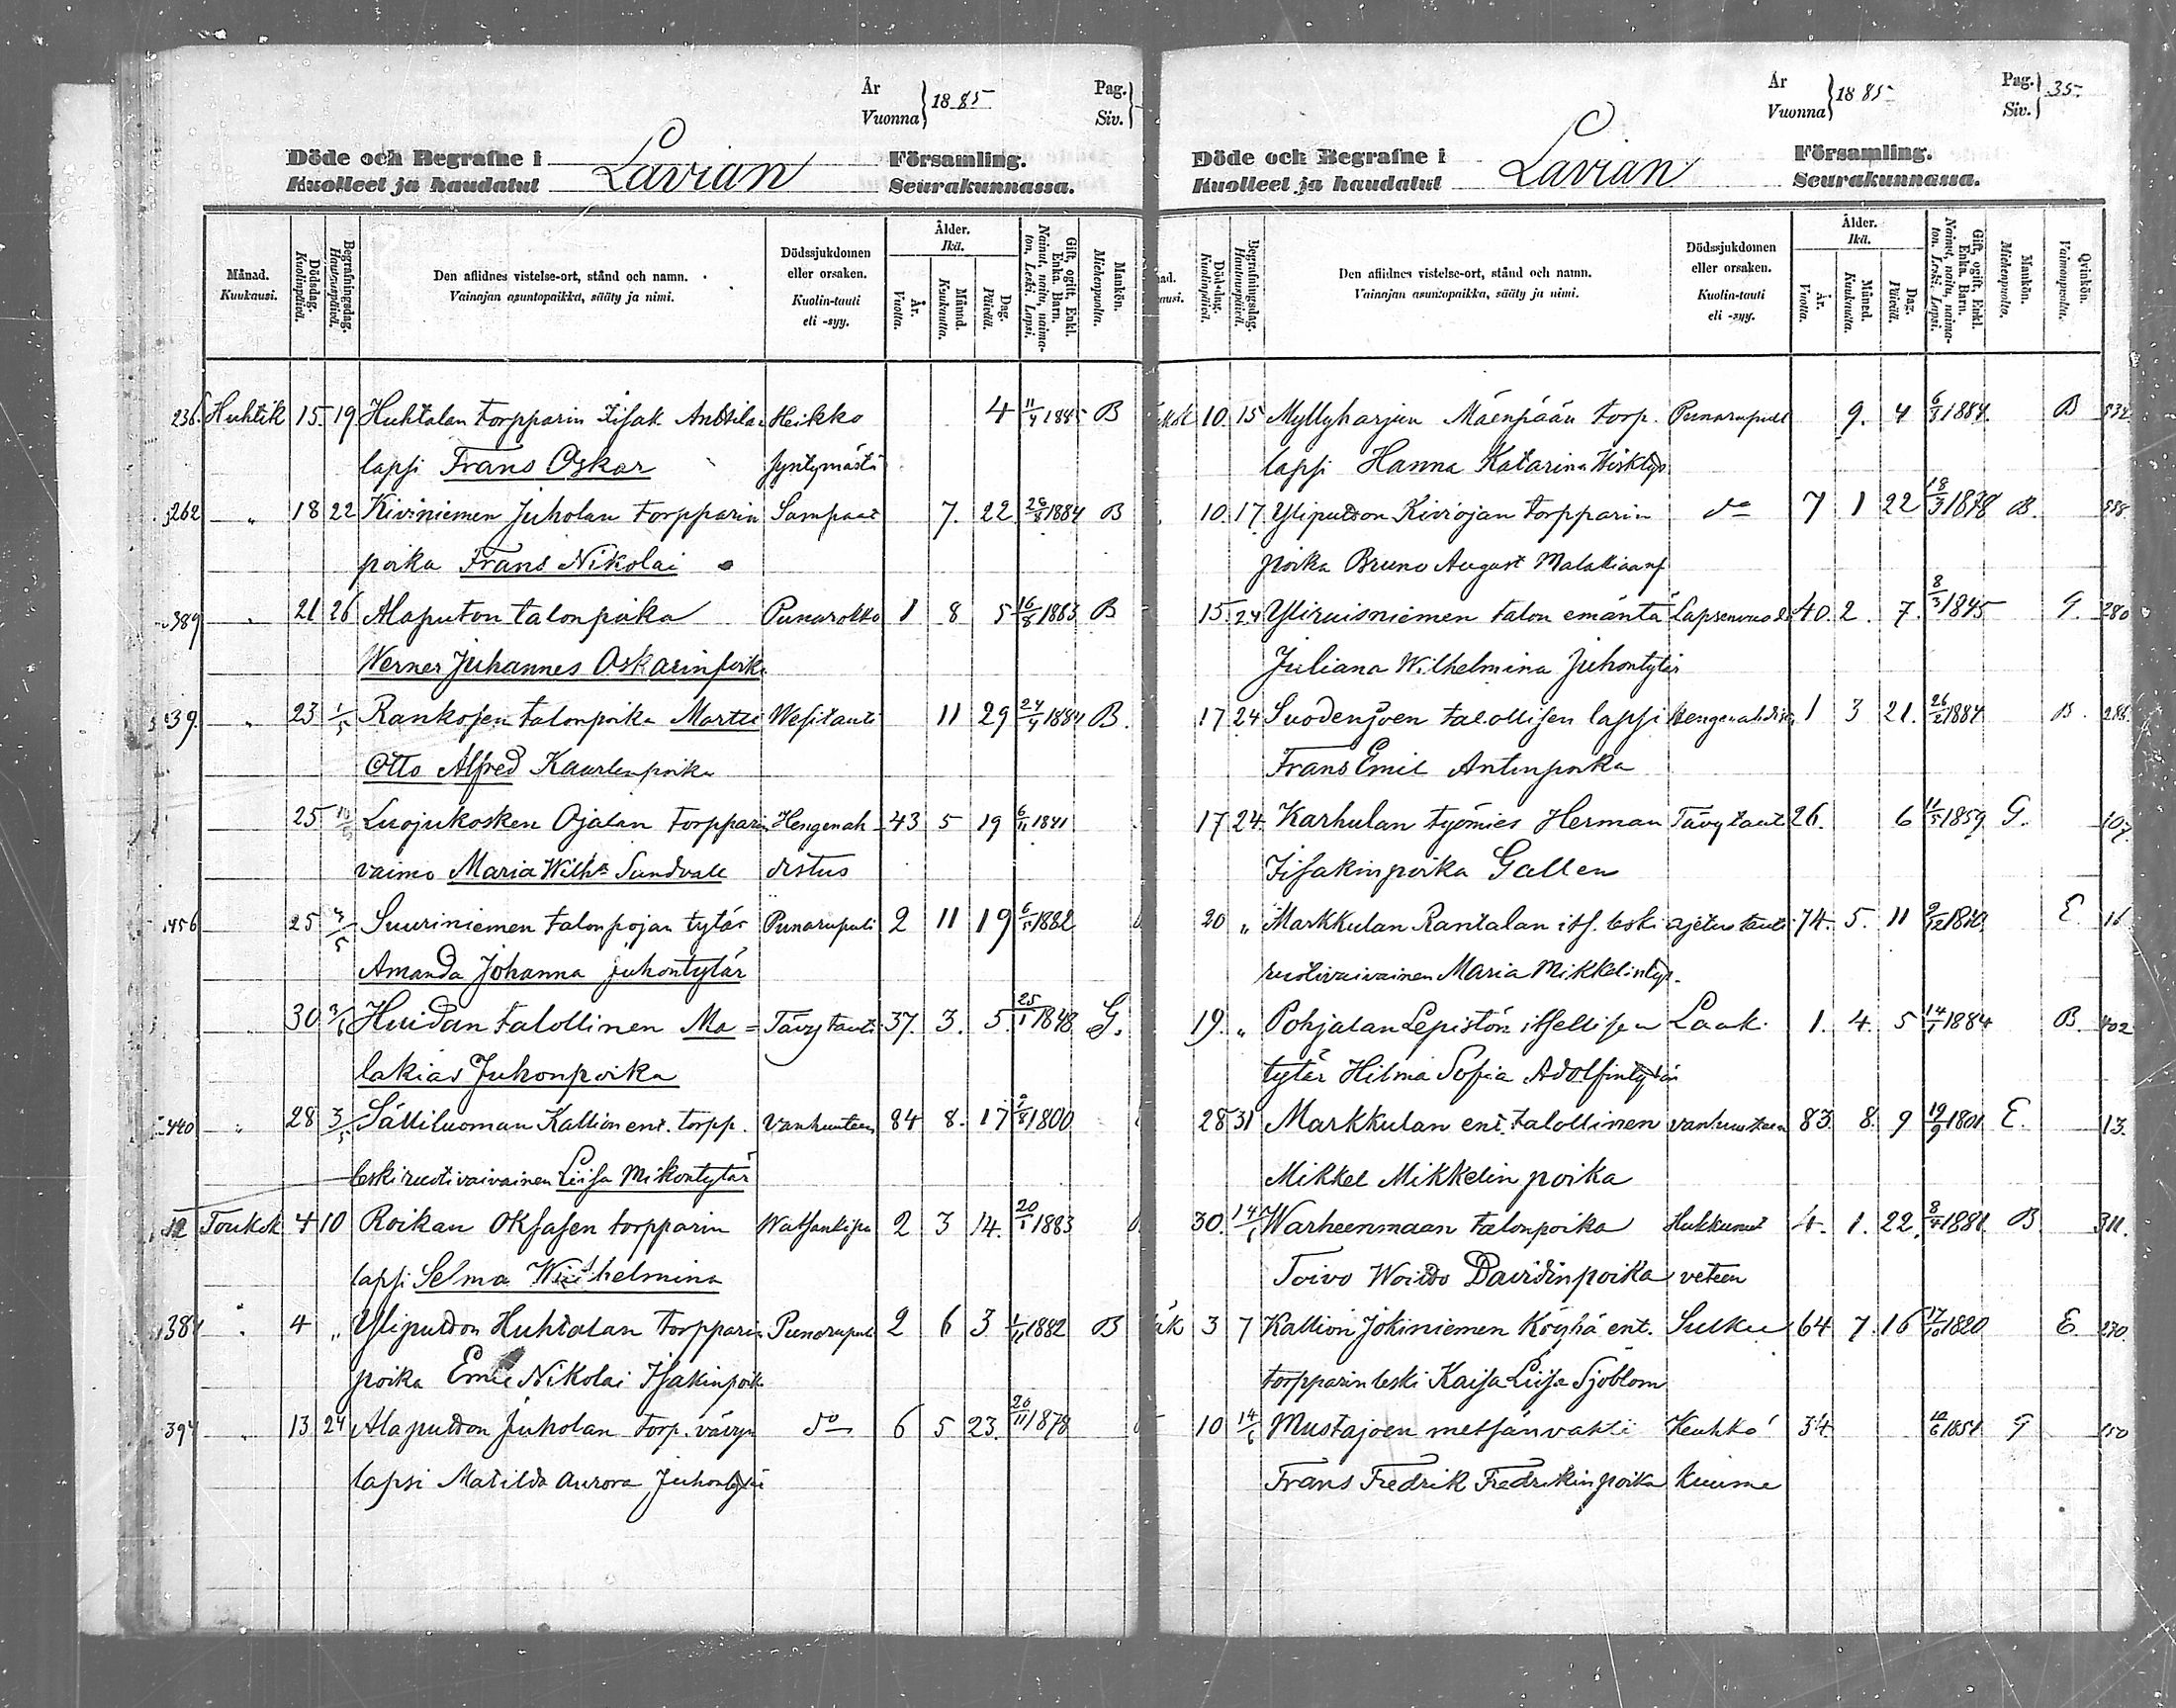 År
Vuonna } 1885
Pag.
Siv. }
Döde och Begrafne i Lavian Församling.
Kuolleet ja haudatut Seurakunnassa.
Månad. Kuukausi.
Dödsdag. Kuolinpäivä.
Begrafningsdag. Hautauspäivä.
Den aflidnes vistelse-ort, stånd och namn.
Vainajan asuntopaikka, sääty ja nimi.
Dödssjukdomen eller orsaken.
Kuolin-tauti eli -syy.
Ålder. Ikä.
År. Vuotta.
Månad. Kuukautta.
Dag. Päivää.
Gift, ogift, Enkl. Enka. Barn.
Nainut, naitu, naimaton, Leski. Lapsi.
Mankön. Miehenpuolta.
236. Huhtik 15 19 Huhtalan torpparin Iisak Anttilan Heikko 4 11/4 1885 B
lapsi Frans Oskar syntymästä
262 " 18 22 Kiviniemen Juholan torpparin Sampaat 7. 22 26/8 1884 B
poika Frans Nikolai
389 " 21 26 Alaputon talonpoika Punarokko 1 8 5 16/8 1883 B
Werner Juhannes Oskarinpoika
39. " 23 1/5 Rankosen talonpoika Martti Wesitauti 11 29 24/4 1884 B.
Otto Alfred Kaarlenpoika
25 Luojukosken Ojalan torpparin Hengenah 43 5 19 6/11 1841
vaimo Maria Wilh:a Sundvall distus
456 25 3/5 Suuriniemen talonpojan tytär Punarupuli 2 11 19 6/5 1882
Amanda Johanna Juhontytär
" 30 Huidan talollinen Ma= Tävytauti 37. 3. 5. 25/1 1848 G.
lakias Juhonpoika
440 " 28 3/5 Sälliluoman Kallion ent. torpp. Vanhuuteen 84 8. 17 2/8 1800
leski ruotivaivainen Liisa Mikontytär
12 Toukok 4 10 Roikan Oksasen torpparin Watsankipu 2 3 14. 20/1 1883
lapsi Selma Wilhelmina
384 " 4 " Yliputon Huhtalan torpparin Punarupuli 2 6 3 1/11 1882 B
poika Emil Nikolai Isakinpoik
394 " 13 24 Alaputon Juholan torp. vävyn do 6 5 23. 20/11 1878
lapsi Matilda Aurora Juhontytär
År
Vuonna } 1885
Pag.
Siv. } 35
Döde och Begrafne i Lavian Församling.
Kuolleet ja haudatut Seurakunnassa.
Dödsdag. Kuolinpäivä.
Begrafningsdag. Hautauspäivä.
Den aflidnes vistelse-ort, stånd och namn.
Vainajan asuntopaikka, sääty ja nimi.
Dödssjukdomen eller orsaken.
Kuolin-tauti eli -syy.
Ålder. Ikä.
År. Vuotta.
Månad. Kuukautta.
Dag. Päivää.
Gift, ogift, Enkl. Enka. Barn.
Nainut, naitu, naimaton. Leski. Lapsi.
Mankön. Miehenpuolta.
Qvinkön. Vaimonpuolta.
10. 15 Myllyharjun Mäenpään torp. Punarupuli 9. 4 6/8 1884. B
lapsi Hanna Katarina
10. 17 Yliputon Kiviojan torpparin do 7 1 22 18/3 1878 B.
poika Bruno August Malakiaanp
15. 24 Yliruisniemen talon emäntä 40. 2. 7. 8/3 1845 G. 280
Juliana Wilhelmina Juhontytär
17 24 Suodenjoen talollisen lapsi Hengenahdist 1 3 21. 26/2 1884 B. 286
Frans Emil Antinpoika
17 24 Karhulan työmies Herman Tävytauti 26. 6 11/5 1859 G. 107
Iisakinpoika Gallen
20 " Markkulan Rantalan its. leski ajetustauti 74. 5. 11 E. 16
ruotivaivainen Maria Mikkelintyt.
19. " Pohjalan Lepistön itsellisen Laak. 1. 4. 5 14/1 1884 B. 402
tytär Hilma Sofia Adolfintytär
28 31 Markkulan ent. talollinen vanhuuteen 83. 8. 9 19/9 1801 E. 13.
Mikkel Mikkelin poika
30. 14/6 Warheenmaan talonpoika Hukkunut 4. 1. 22. 8/4 1881. B 311.
Toivo Woitto Davidinpoika veteen
3 7 Kallion Jokiniemen Köyhä ent. Sulku 64 7. 16 17/10 1820 E. 270.
torpparin leski Kaisa Liisa Sjöblom
10 14/6 Mustajoen metsänvahti Keuhko 34 G 150
Frans Fredrik Fredrikinpoika kuume